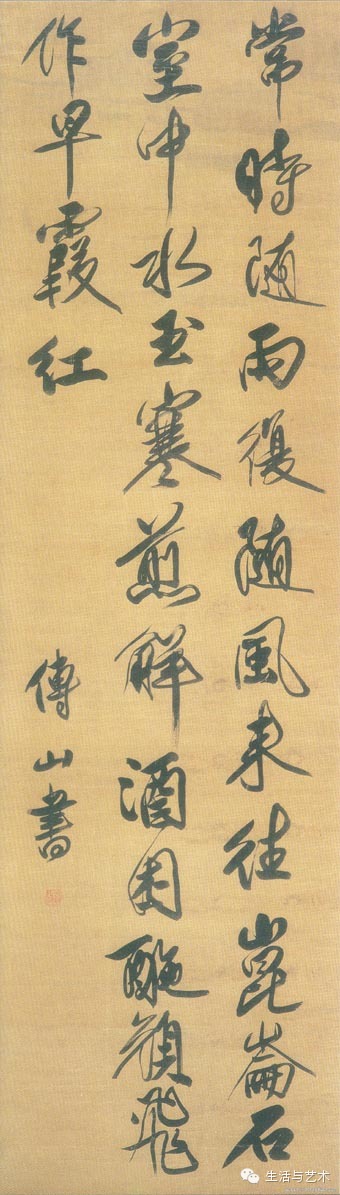 常時随雨復随風来往崑崙石
室中水玉寒煎解酒困酡顔飛
作早霞红
傅山書
生活与艺术